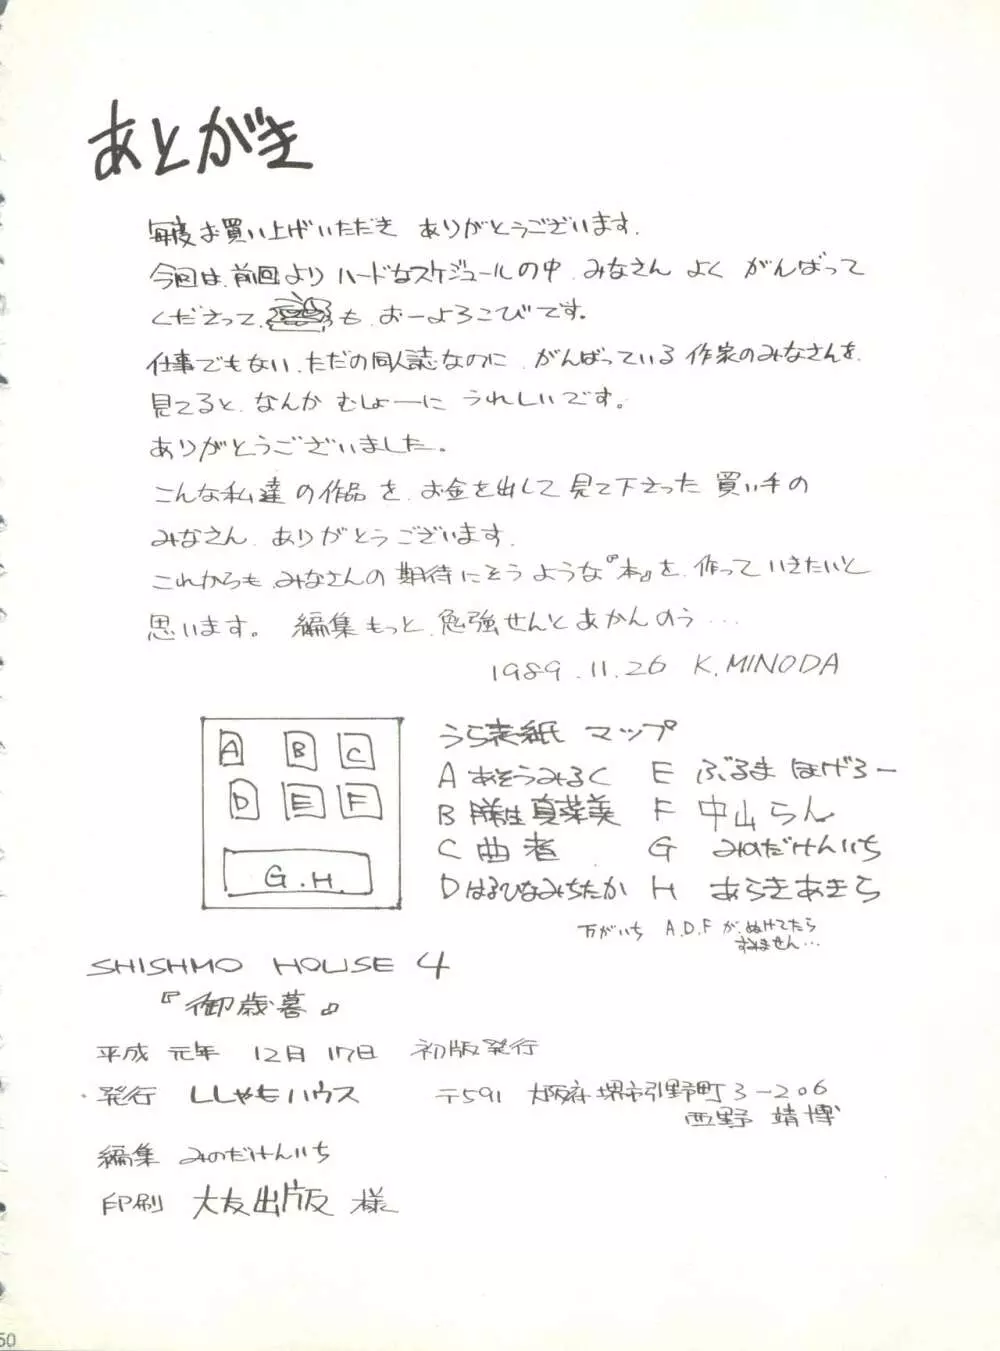 あとがき
毎度お買い上げいただき ありがとうございます.
今回は、前回より ハードなスケジュールの中、みなさん よく がんばって
くださって、も、おーよろこびです。
仕事でもない、ただの同人誌なのに、がんばっている 作家のみなさんを、
見てると、なんか むしょーに うれしいです。
ありがとうございました。
こんな私達の作品を、お金を出して見て下さった 買い手の
みなさん、ありがとうございます.
これからも、みなさんの期待にそうような『本』を、作っていきたいと
思います。 編集もっと、勉強せんとあかんのう…
1989.11.26 K.MINODA
うら表紙 マップ
A B C
D E F
G.H.
A あそうみるく E ぶるまほげろー
B 勝生真菜美 F 中山らん
C 曲者 G みのだけんいち
D はるひなみちたか H あらきあきら
万がいち A.D.F が、ぬけてたら
すみません…
SHISHMO HOUSE 4
『御歳暮』
平成 元年 12日 17日 初版発行
・発行 ししゃもハウス 〒591 大阪府堺市引野町3-206
西野 靖博
編集 みのだけんいち
印刷 大友出版 様
50